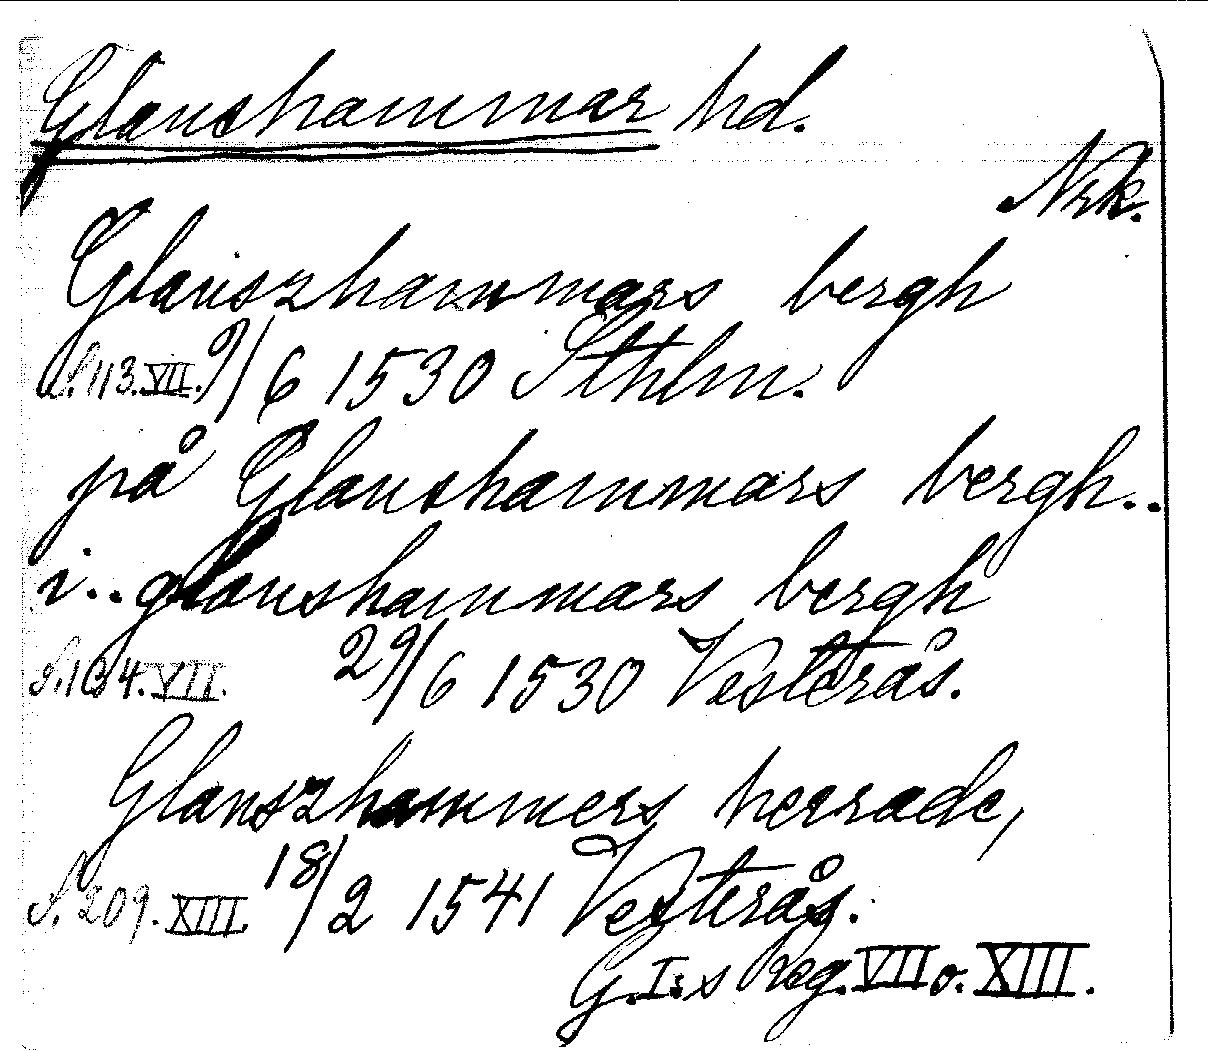 Glanshammar hd.
Nrk.
Glanszhammars bergh
S. 113. VII. 9/6 1530 Sthlm.
på Glanshammars bergh..
i.. glanshammars bergh
S. 134. VII. 29/6 1530 Vesterås.
Glanszhammers herrade,
S. 209. XIII. 18/2 1541 Vesterås.
G. I:s Reg. VII o. XIII.